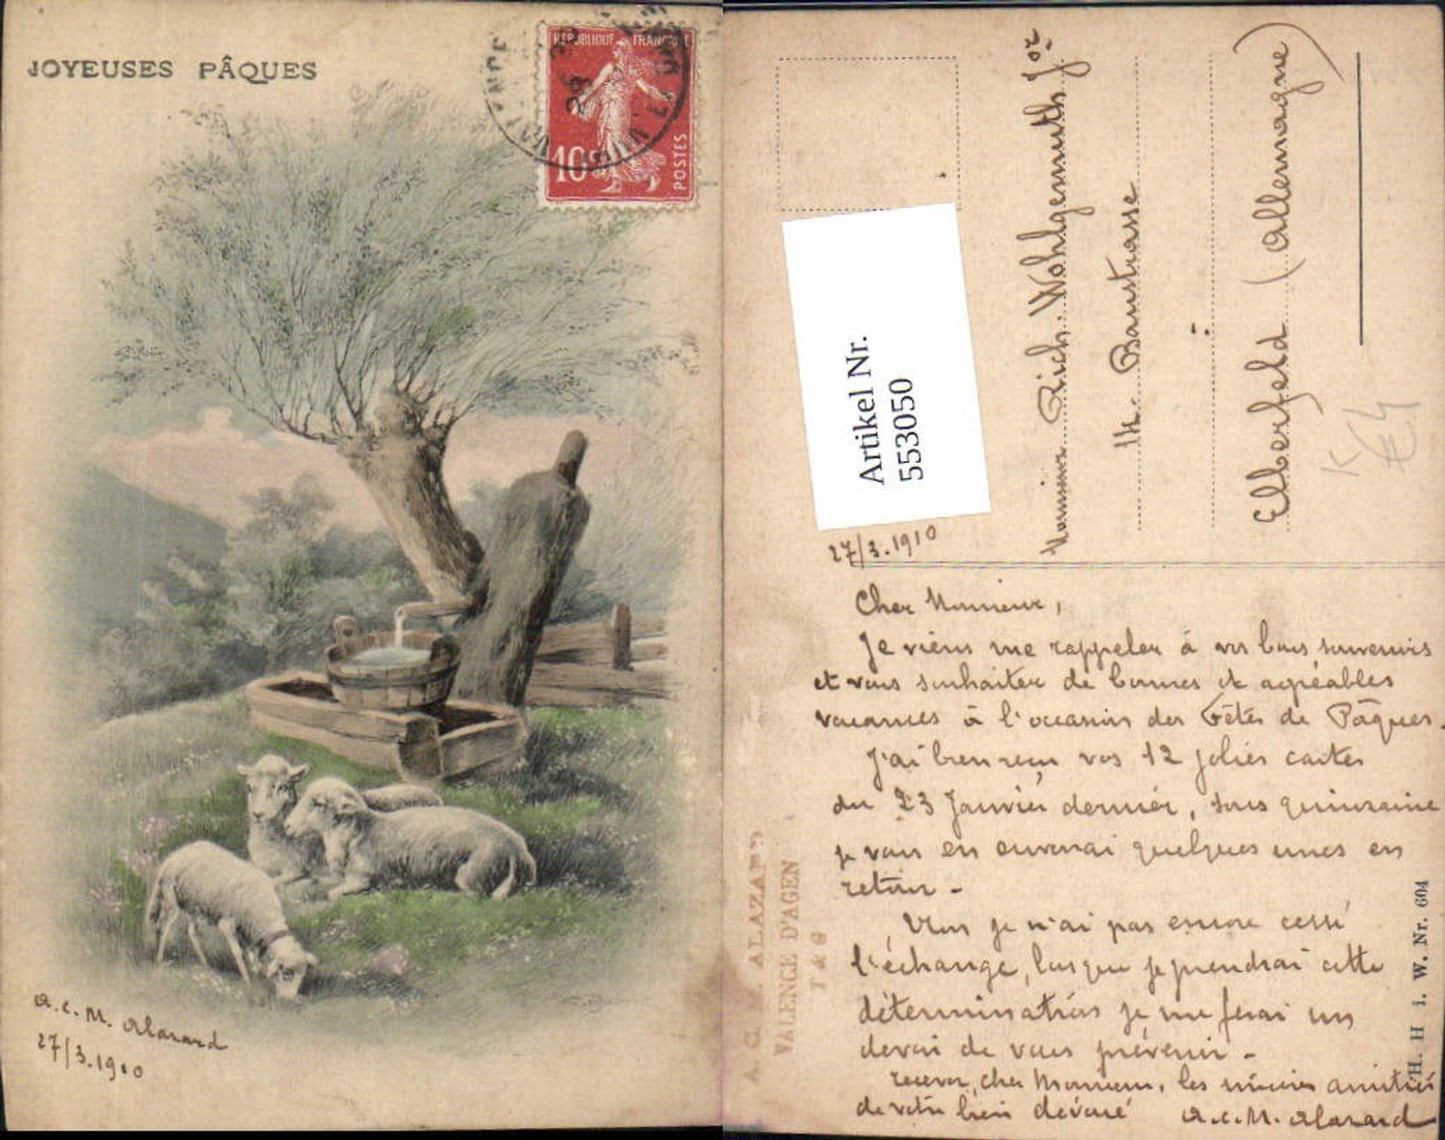 JOYEUSES PÂQUES
REPUBLIQUE FRANÇAISE
10c
POSTES
VALENCE
A. C. M. Alazard
27/3.1910
Monsieur Rich. Wohlgemuth Jor
14. Baustrasse
Elberfeld (Allemagne)
K
€4
Artikel Nr.
553050
27/3.1910
Cher Monsieur,
Je viens me rappeler à vos bons souvenirs
et vous souhaiter de bonnes et agréables
vacances à l'occasion des Fêtes de Pâques.
J'ai bien reçu vos 12 jolies cartes
du 23 Janvier dernier, sous quinzaine
je vais en envoyer quelques unes en
retour -
Non je n'ai pas encore cessé
l'échange, lorsque je prendrai cette
détermination je me ferai un
devoir de vous prévenir -
recevez, cher Monsieur, les mêmes amitiés
de votre bien dévoué A.C.M. Alazard
A. C. M. ALAZARD
VALENCE D'AGEN
T & G
H. H i. W. Nr. 604